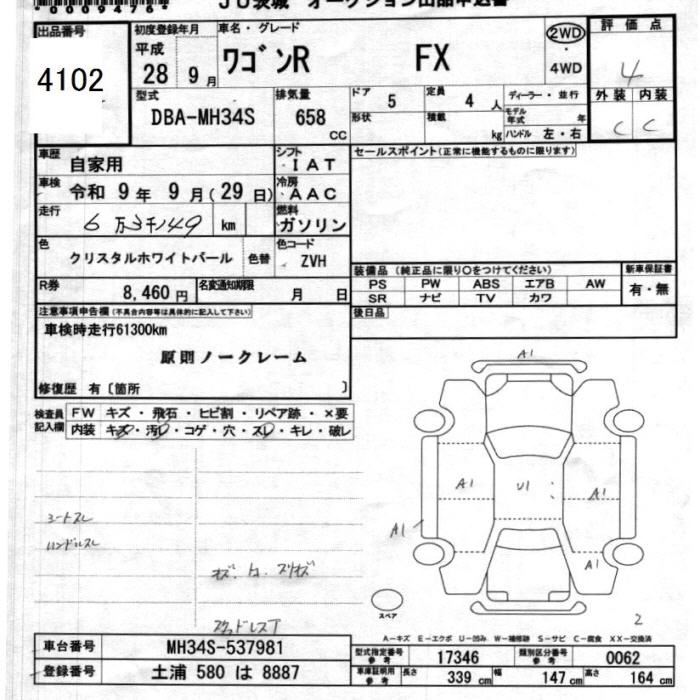 0009476
JU茨城 オークション出品申込書
出品番号
4102
初度登録年月
平成
28 9 月
車名・グレード
ワゴンR FX
2WD
・
4WD
評価点
4
外装 内装
C C
型式
DBA-MH34S
排気量
658
CC
ドア
5
定員
4 人
ディーラー・並行
形状
積載
kg
モデル年式
年
ハンドル 左・右
車歴
自家用
シフト
・IAT
セールスポイント(正常に機能するものに限ります)
車検
令和 9年 9月(29日)
冷房
・AAC
走行
6万3千149 km
燃料
ガソリン
色
クリスタルホワイトパール
色替
色コード
・ZVH
R券
8,460円
名変通知期限
月 日
装備品 (純正品に限り○をつけてください)
新車保証書
PS PW ABS エアB AW
有・無
SR ナビ TV カワ
後日品
注意事項申告欄(不具合内容等は具体的に記入して下さい)
車検時走行61300km
原則ノークレーム
修復歴 有〔箇所 〕
検査員記入欄
FW キズ・飛石・ヒビ割・リペア跡・×要
内装 キズ・汚れ・コゲ・穴・スレ・キレ・破レ
シートスレ
ハンドルスレ
A1
A1
U1
A1
A1
A1
スペア
2
A-キズ E-エクボ U-凹み W-補修跡 S-サビ C-腐食 XX-交換済
車台番号
MH34S-537981
登録番号
土浦 580 は 8887
型式指定番号
参考
17346
類別区分番号
参考
0062
車庫証明用
参考
長さ
339 cm
幅
147 cm
高さ
164 cm